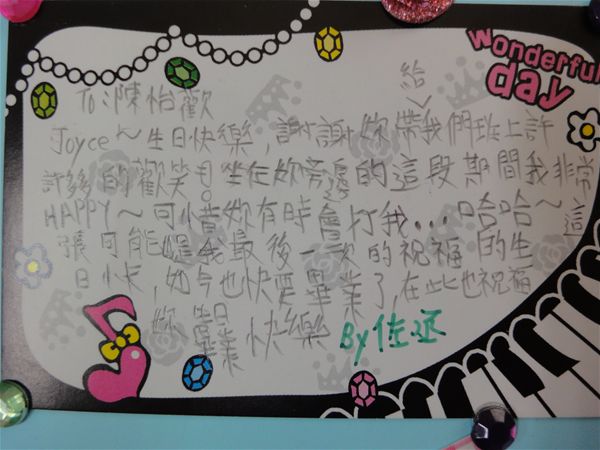 wonderful
day
To:陳怡歡
給
Joyce~生日快樂,謝謝妳帶我們班上許
許多的歡笑!坐在妳旁邊的這段期間我非常
HAPPY~可惜妳有時會打我...哈哈~這
張可能是我最後一次的祝福的生
日卡,如今也快要畢業了,在此也祝福
妳 畢業快樂 By佐丞